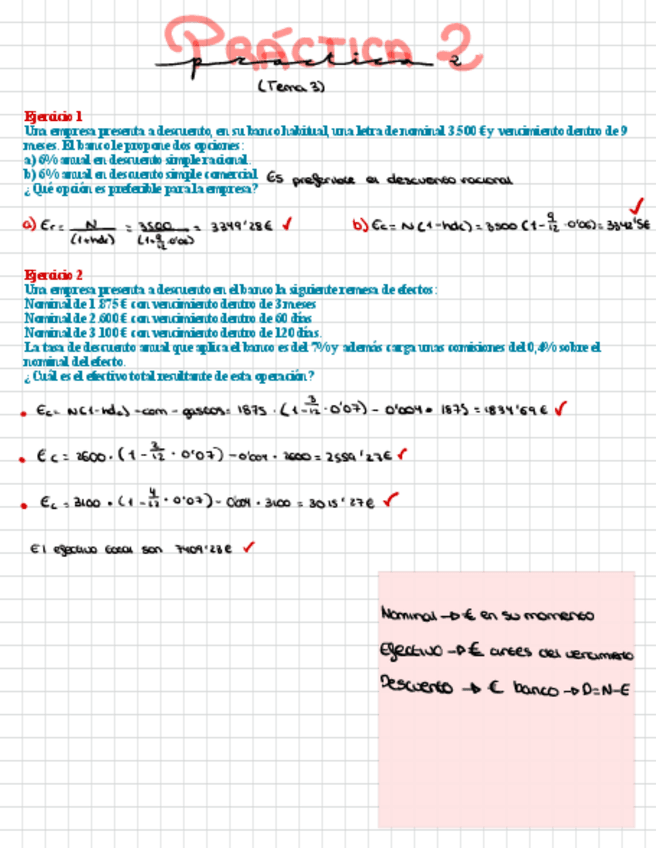 PRÁCTICA 2
practica 2
(Tema 3)
Ejercicio 1
Una empresa presenta a descuento, en su banco habitual, una letra de nominal 3.500 € y vencimiento dentro de 9
meses. El banco le propone dos opciones:
a) 6% anual en descuento simple racional.
b) 6% anual en descuento simple comercial.
Es preferible el descuento racional
¿Qué opción es preferible para la empresa?
a) Er = N / (1+ndr) = 3500 / (1+9/12·0'06) = 3349'28€ ✓
b) Ec = N(1-ndc) = 3500(1-9/12·0'06) = 3342'5€ ✓
Ejercicio 2
Una empresa presenta a descuento en el banco la siguiente remesa de efectos:
Nominal de 1.875 € con vencimiento dentro de 3 meses
Nominal de 2.600 € con vencimiento dentro de 60 días
Nominal de 3.100 € con vencimiento dentro de 120 días.
La tasa de descuento anual que aplica el banco es del 7% y además carga unas comisiones del 0,4% sobre el
nominal del efecto.
¿Cuál es el efectivo total resultante de esta operación?
• Ec = N(1-ndc) - com - gastos = 1875 · (1-3/12·0'07) - 0'004 · 1875 = 1834'69€ ✓
• Ec = 2600 · (1-2/12·0'07) - 0'004 · 2600 = 2559'27€ ✓
• Ec = 3100 · (1-4/12·0'07) - 0'004 · 3100 = 3015'27€ ✓
El efectivo total son 7409'23€ ✓
Nominal → € en su momento
Efectivo → € antes del vencimiento
Descuento → € banco → D=N-E